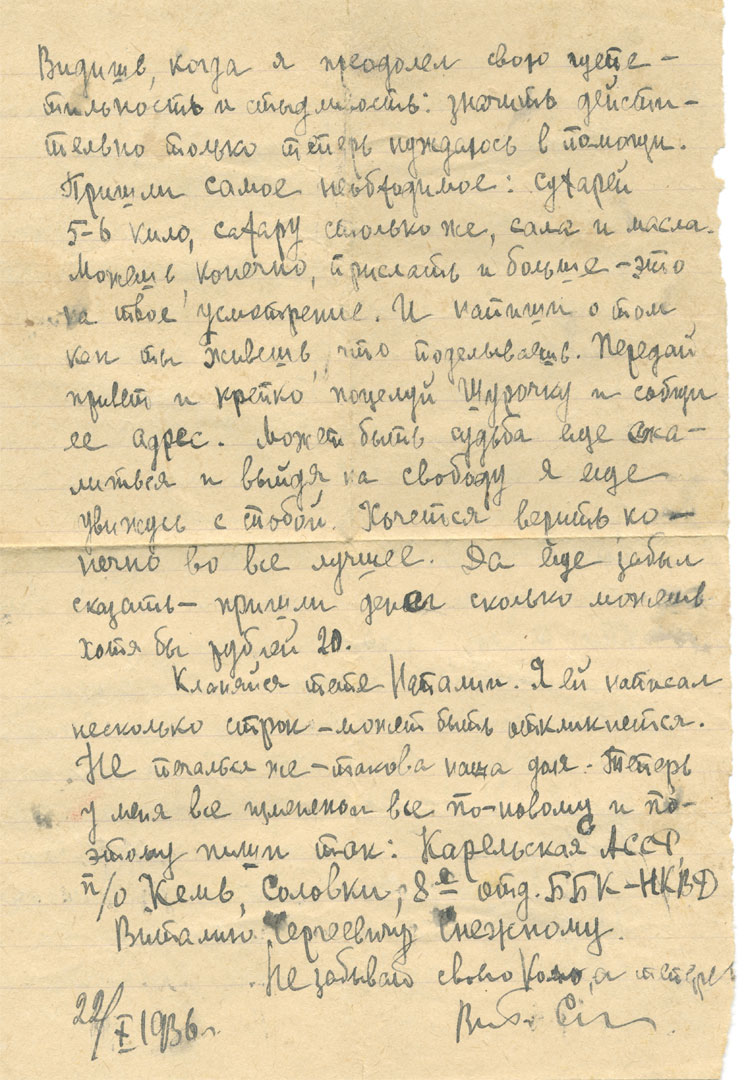 Видишь, когда я преодолел свою щепе-
тильность и стыдливость: значить действи-
тельно только теперь нуждаюсь в помощи.
Пришли самое необходимое: сухарей
5-6 кило, сахару столько же, сала и масла.
Можешь, конечно, прислать и больше – это
на твое усмотрение. И напиши о том
как ты живешь, что поделываешь. Передай
привет и крепко поцелуй Шурочку и сообщи
ее адрес. Может быть судьба еще сжа-
литься и выйдя на свободу я еще
увижусь с тобой. Хочется верить ко-
нечно во все лучшее. Да еще забыл
сказать – пришли денег сколько можешь
хотя бы рублей 20.
Кланяйся тете Наталии. Я ей написал
несколько строк – может быть откликнется.
Не печалься же – такова наша доля. Теперь
у меня все изменено и все по-новому и по-
этому пиши так: Карельская АССР,
п/о Кемь, Соловки, 8е отд. ББК-НКВД
Виталию Сергеевичу Снежному.
Не забываю свою Колю, а теперь
22/X 1936 г.